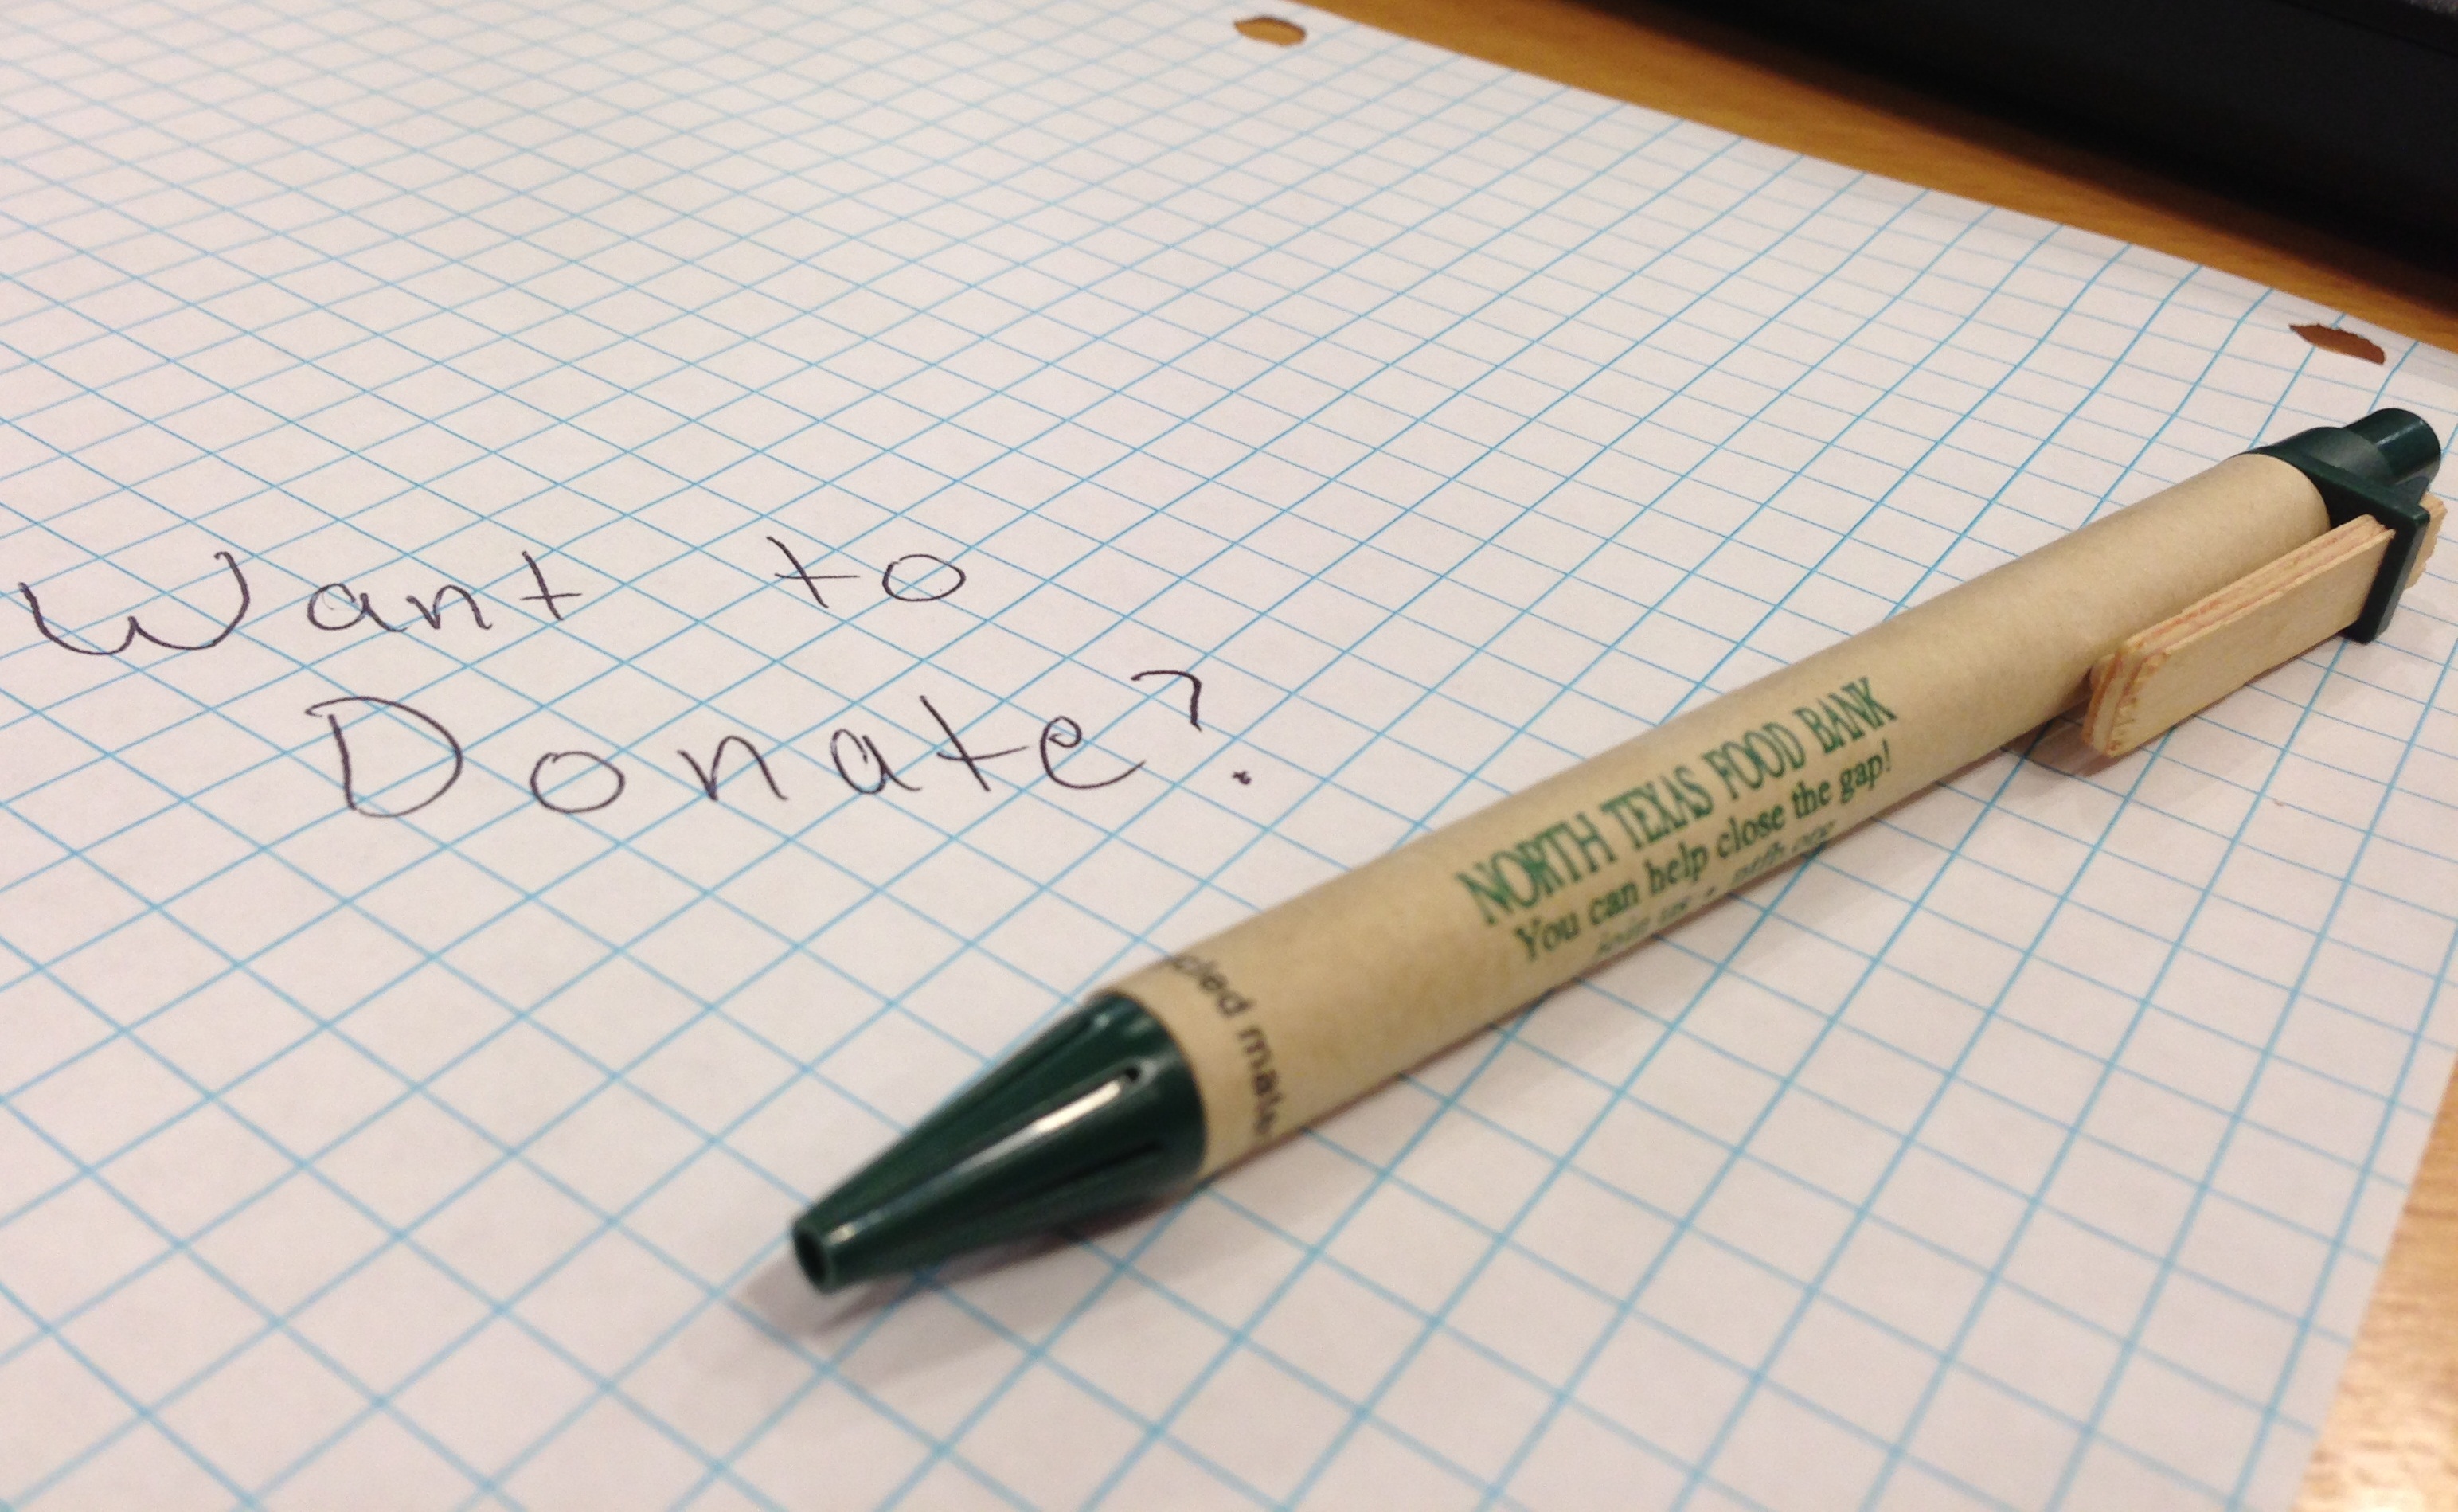 Want to
Donate?
NORTH TEXAS FOOD BANK
You can help close the gap!
join us • ntfb.org